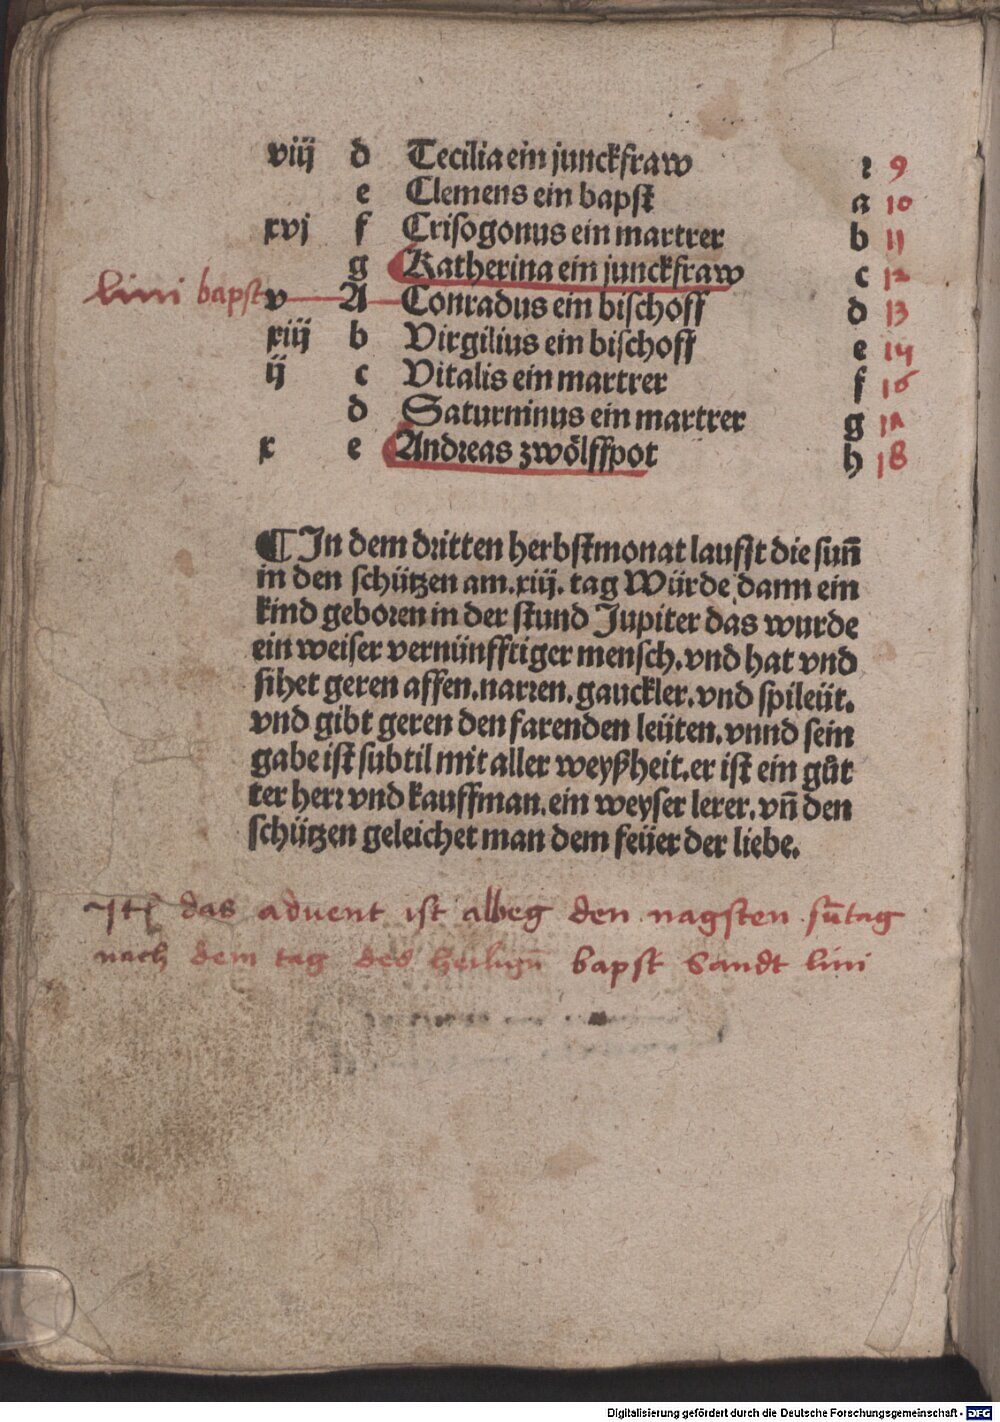 viij d Tecilia ein junckfraw ι 9
e Clemens ein bapſt a 10
xvj f Criſogonus ein martrer b 11
g Katherina ein junckfraw c 12
lini bapst v A Conradus ein biſchoff d 13
xiij b Virgilius ein biſchoff e 14
ij c Vitalis ein martrer f 16
d Saturninus ein martrer g 1Λ
x e Andreas zwölffpot h 18
¶ In dem dritten herbſtmonat laufft die sun̄
in den ſchützen am.xiij. tag Würde dann ein
kind geboren in der ſtund Jupiter das wurde
ein weiſer vernünfftiger menſch.vnd hat vnd
ſihet geren affen.narren.gauckler.vnd ſpileüt.
vnd gibt geren den farenden leüten.vnnd ſein
gabe iſt ſubtil mit aller weyßheit.er iſt ein gůt
ter herr vnd kauffman.ein weyſer lerer.vn̄ den
ſchützen geleichet man dem feüer der liebe.
Itē das advent ist albeg den nagsten sūtag
nach dem tag des heilign̄ bapst Sandt lini
Digitalisierung gefördert durch die Deutsche Forschungsgemeinschaft - DFG